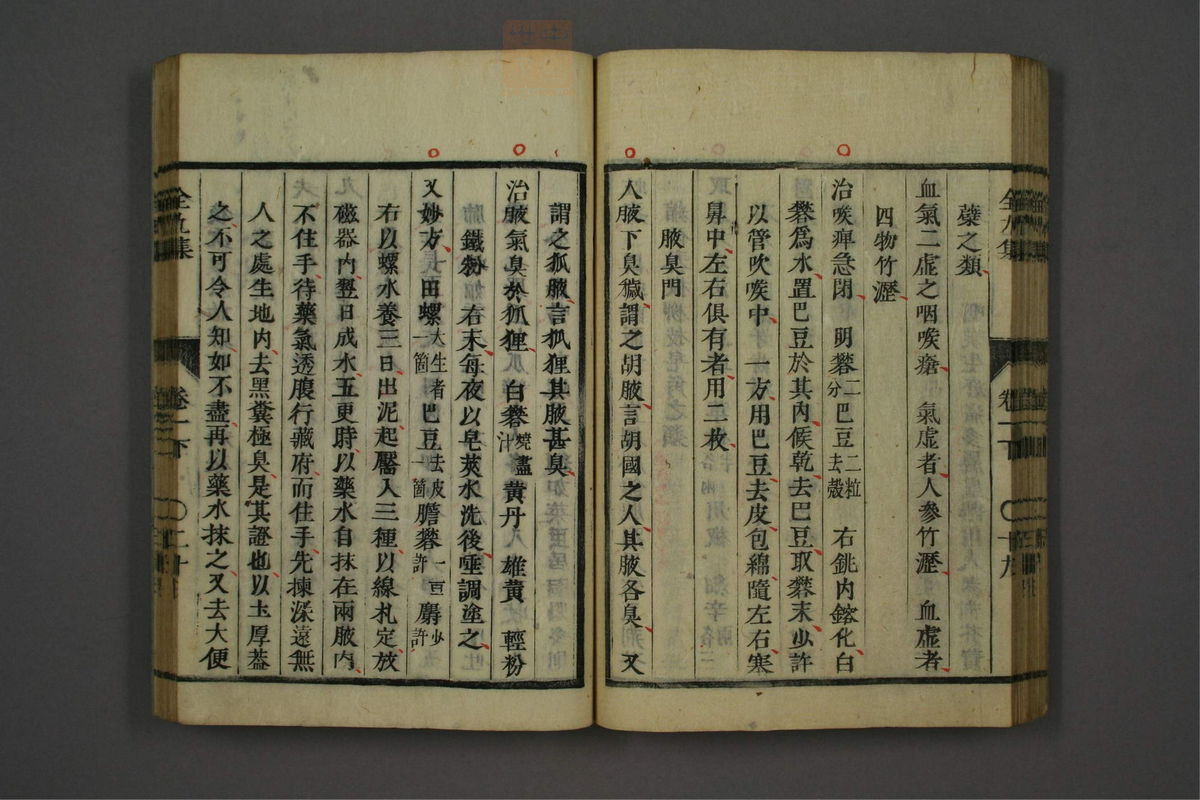 蘗之類
血氣二虛之咽喉瘡 氣虛者人參竹瀝 血虛者
四物竹瀝
治喉痺急閉 明礬二分巴豆二粒去殼 右銚內鎔化白
礬爲水置巴豆於其內候乾去巴豆取礬末少許
以管吹喉中 一方用巴豆去皮包綿隨左右塞
鼻中左右俱有者用二枚
腋臭門
人腋下臭穢謂之胡腋言胡國之人其腋各臭又
全九集
卷一下
十九
謂之狐腋言狐狸其腋甚臭
治腋氣臭於狐狸 白礬燒盡汁黄丹八雄黄 輕粉
鐵粉 右末每夜以皂莢水洗後唾調塗之
又妙方 田螺大生者一箇巴豆去皮一箇膽礬一豆許麝少許
右以螺水養三日出泥起靨入三種以線札定放
磁器內翌日成水五更時以藥水自抹在兩腋內
不住手待藥氣透腹行藏府而住手先揀深遠無
人之處生地內去黑糞極臭是其證也以土厚蓋
之不可令人知如不盡再以藥水抹之又去大便
全九集
卷一下
二十